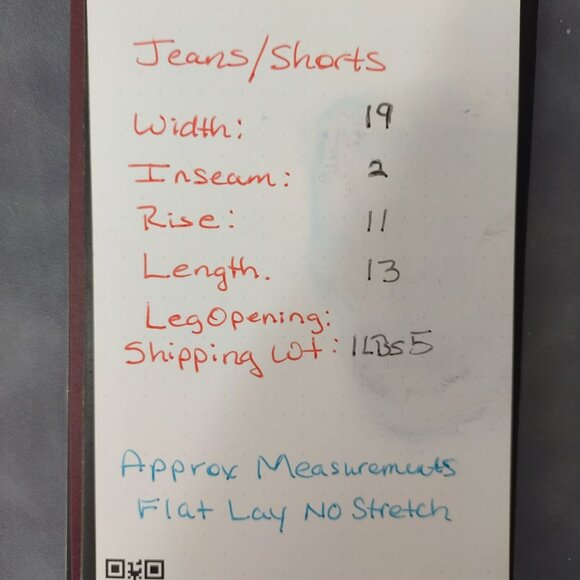 Jeans/Shorts
Width: 19
Inseam: 2
Rise: 11
Length. 13
Leg Opening:
Shipping Wt: 1LBS 5
Approx Measurements
Flat Lay No Stretch